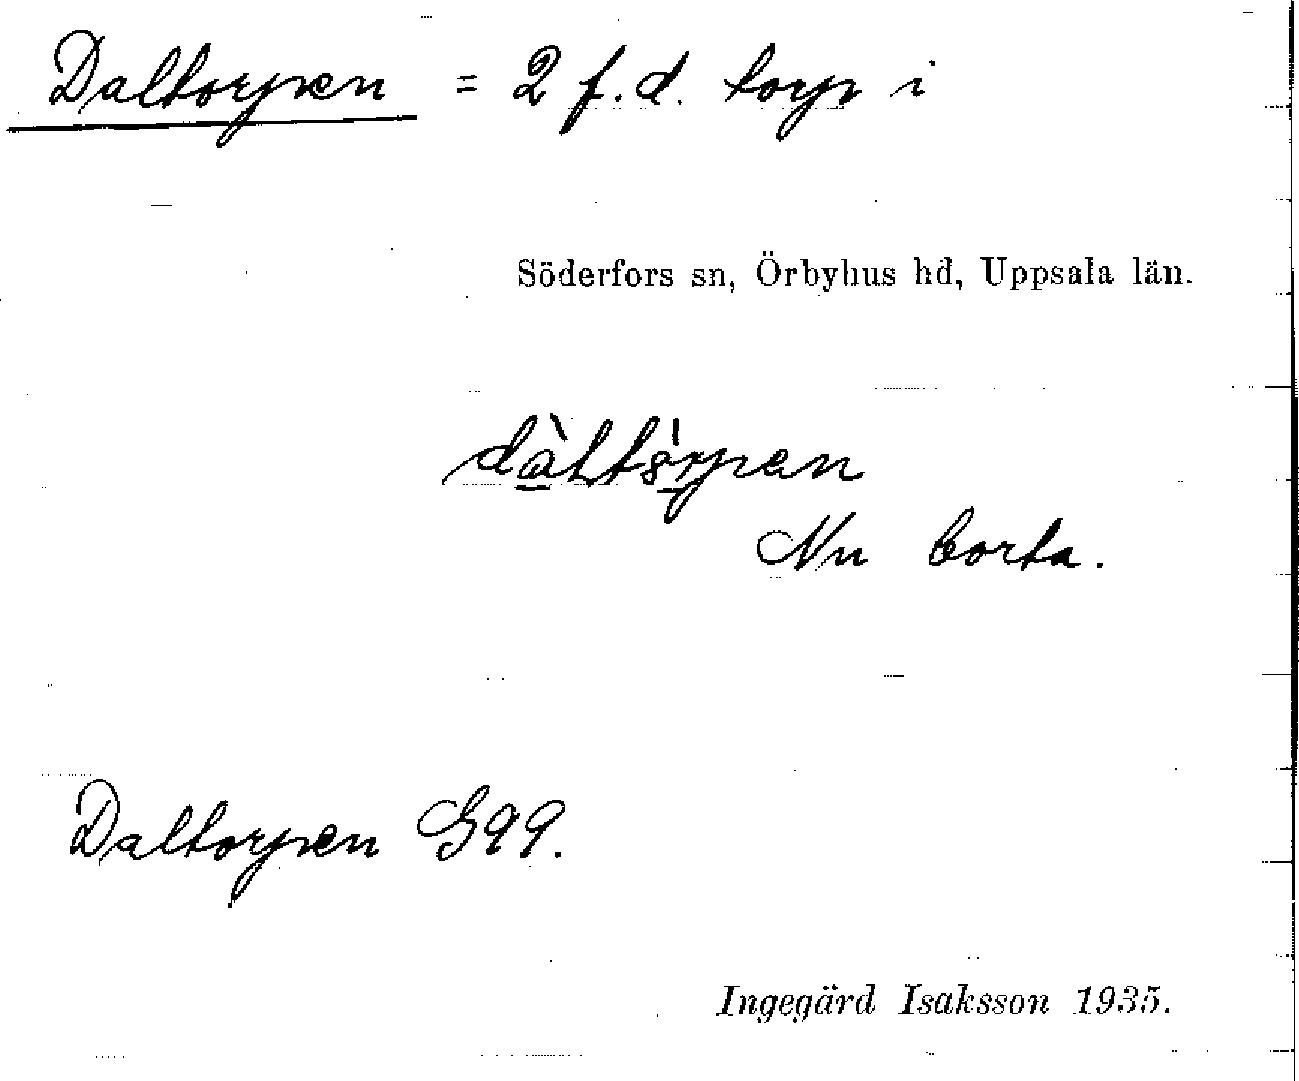 Daltorpen = 2 f.d. torp i
Söderfors sn, Örbyhus hd, Uppsala län.
dàltårpen
Nu borta.
Daltorpen G99.
Ingegärd Isaksson 1935.